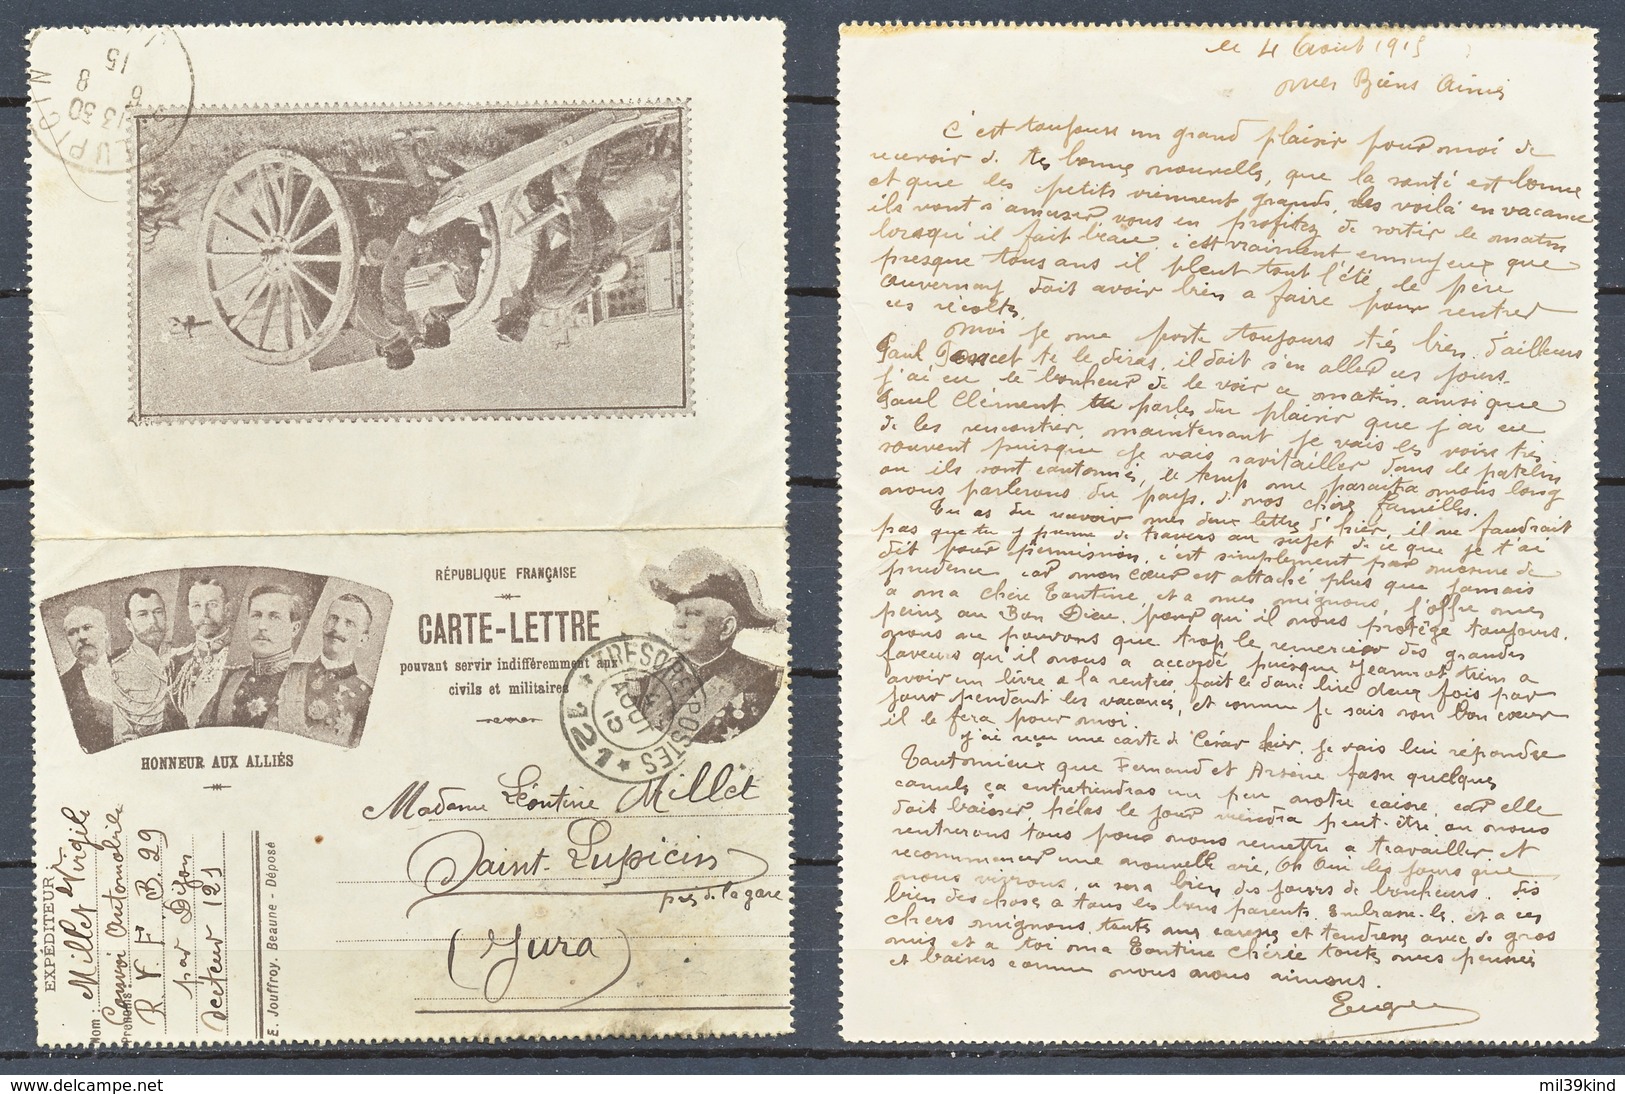 RÉPUBLIQUE FRANÇAISE
CARTE-LETTRE
pouvant servir indifféremment aux
civils et militaires
HONNEUR AUX ALLIÉS
TRESOR ET POSTES
121
AOUT
Madame Léontine Millet
Saint-Lupicin
près de la gare
(Jura)
EXPÉDITEUR
Nom: Millet Virgile
Prénoms: Convoi Automobile
R. V. F. B. 29
par Dijon
Secteur 121
E. Jouffroy. Beaune - Déposé
13 30
8
15
le 4 Août 1915
mes Biens Aimés
C'est toujours un grand plaisir pour moi de
recevoir de tes bonnes nouvelles, que la santé est bonne
et que les petits viennent grands, les voilà en vacance
ils vont s'amuser vous en profitez de sortir le matin
lorsqu'il fait beau, c'est vraiment ennuyeux que
presque tous ans il pleut tout l'été, le père
Auvernay doit avoir bien a faire pour rentrer
ces récoltes.
Moi je me porte toujours très bien d'ailleurs
Paul Poncet te le diras, il doit s'en aller ces jours.
j'ai eu le bonheur de le voir ce matin, ainsi que
Paul Clément tu parles du plaisir que j'ai eu
de les rencontrer, maintenant je vais les voire très
souvent puisque je vais ravitailler dans le patelin
ou ils sont cantonnés, le temp me paraitra moins long
nous parlerons du pays, de nos chères familles.
Tu as du recevoir mes deux lettres d'hier, il ne faudrait
pas que tu y prenne de travers au sujet de ce que je t'ai
dit pour permission, c'est simplement par mesure de
prudence car mon cœur est attaché plus que jamais
a ma chère Tantine, et a mes mignons, j'offre mes
peines au Bon Dieu, pour qu'il nous protège toujours.
nous ne pouvons que trop le remercier des grandes
faveurs qu'il nous a accordé, puisque Jeannot tiens a
avoir un livre a la rentrée, fait le donc lire deux fois par
jour pendant les vacances, et comme je sais son bon cœur
il le fera pour moi.
J'ai reçu une carte de César hier, je vais lui répondre
Tantomieux que Fernand et Arsène fasse quelques
cannes, ça entretiendras un peu notre caisse, car elle
doit baisser, hélas le jour viendra peut-être, ou nous
rentrerons tous pour nous remettre a travailler et
recommencer une nouvelle vie, Oh Oui les jours que
nous vivrons, ce sera bien des jours de bonheurs. Dis
bien des choses a tous les bons parents. Embrasse-les et a ces
chers mignons, toutes mes caresses et tendresses avec de gros
mis et a toi ma Tantine Chérie toutes mes pensées
et baisers comme nous nous aimons.
Eugène
mil39kind